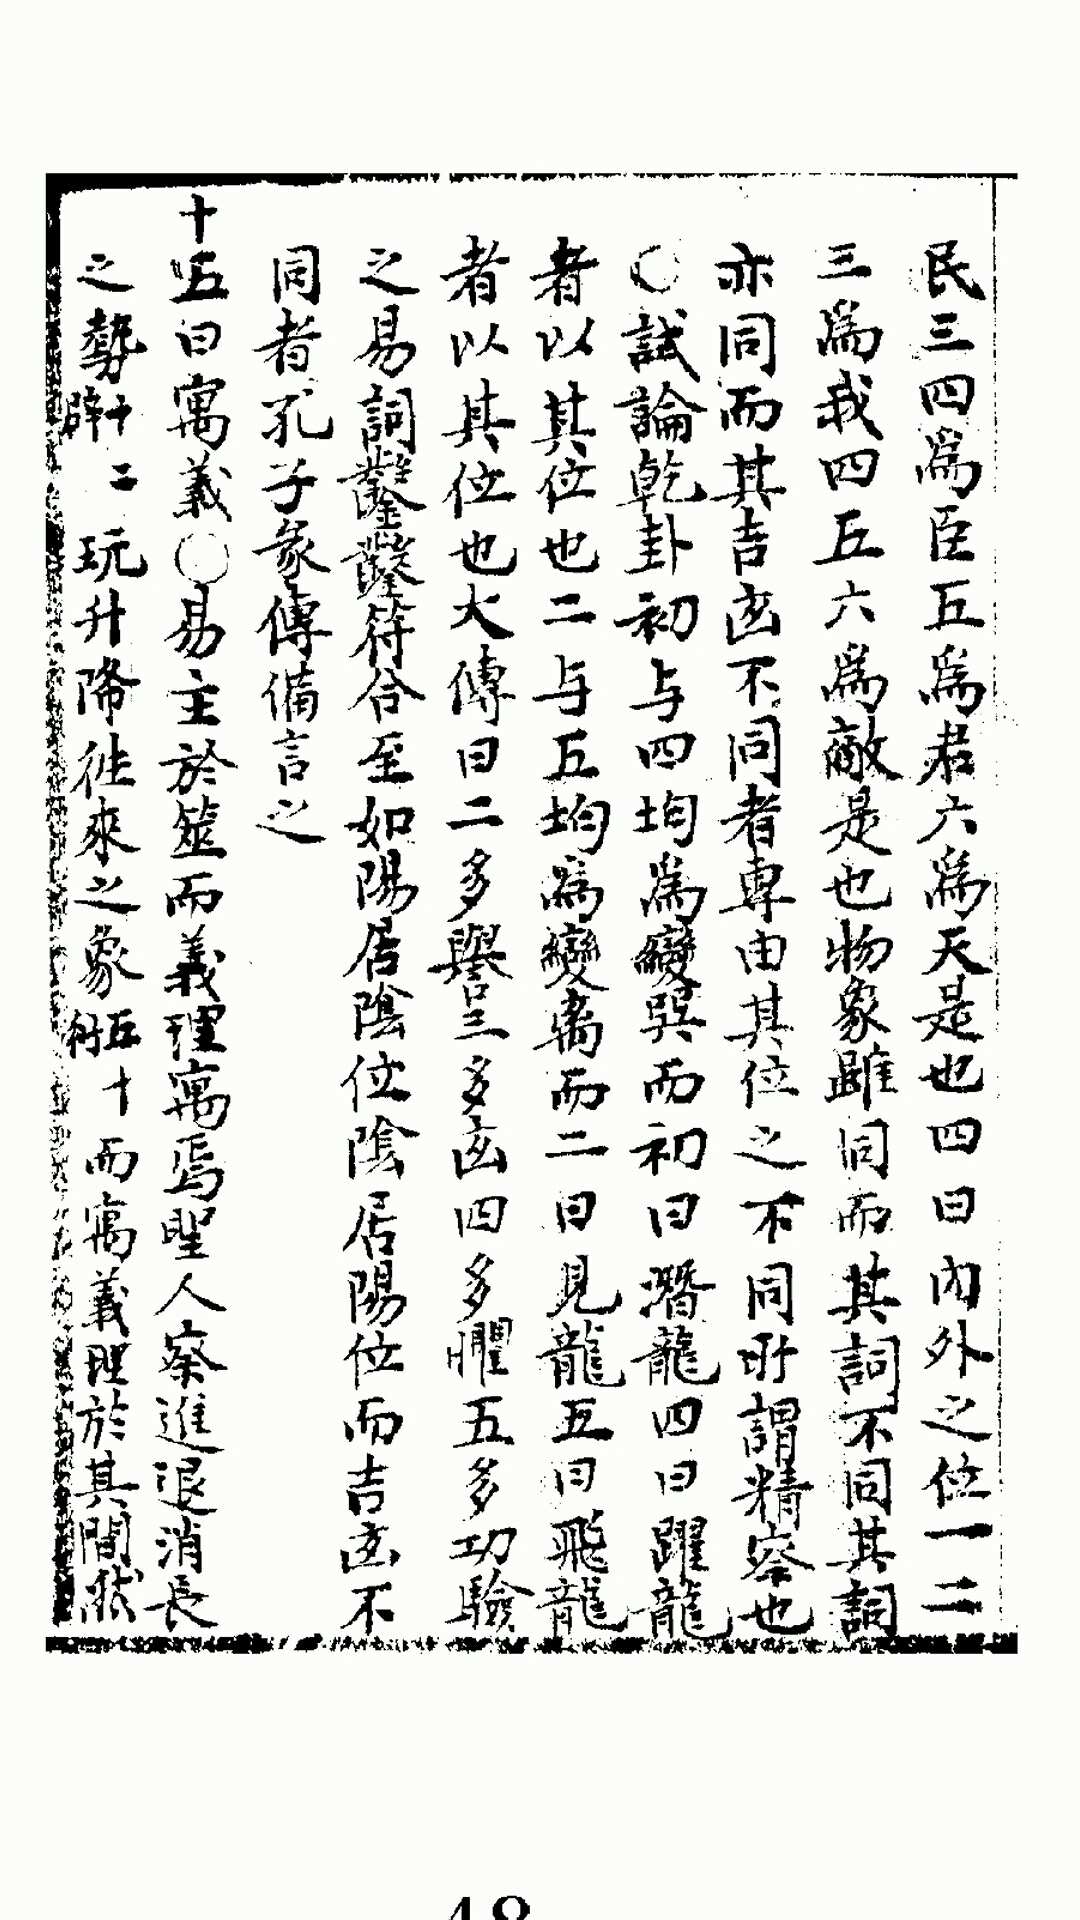 民三四爲臣五爲君六爲天是也四曰內外之位一二
三爲我四五六爲敵是也物象雖同而其詞不同其詞
亦同而其吉凶不同者專由其位之不同所謂精察也
○試論乾卦初与四均爲變巽而初曰潛龍四曰躍龍
者以其位也二与五均爲變离而二曰見龍五曰飛龍
者以其位也大傳曰二多譽三多凶四多懼五多功驗
之易詞鑿鑿符合至如陽居陰位陰居陽位而吉凶不
同者孔子彖傳備言之
十五曰寓義○易主於筮而義理寓焉聖人察進退消長
之勢十二辟玩升降往來之象五十衍而寓義理於其間然
48